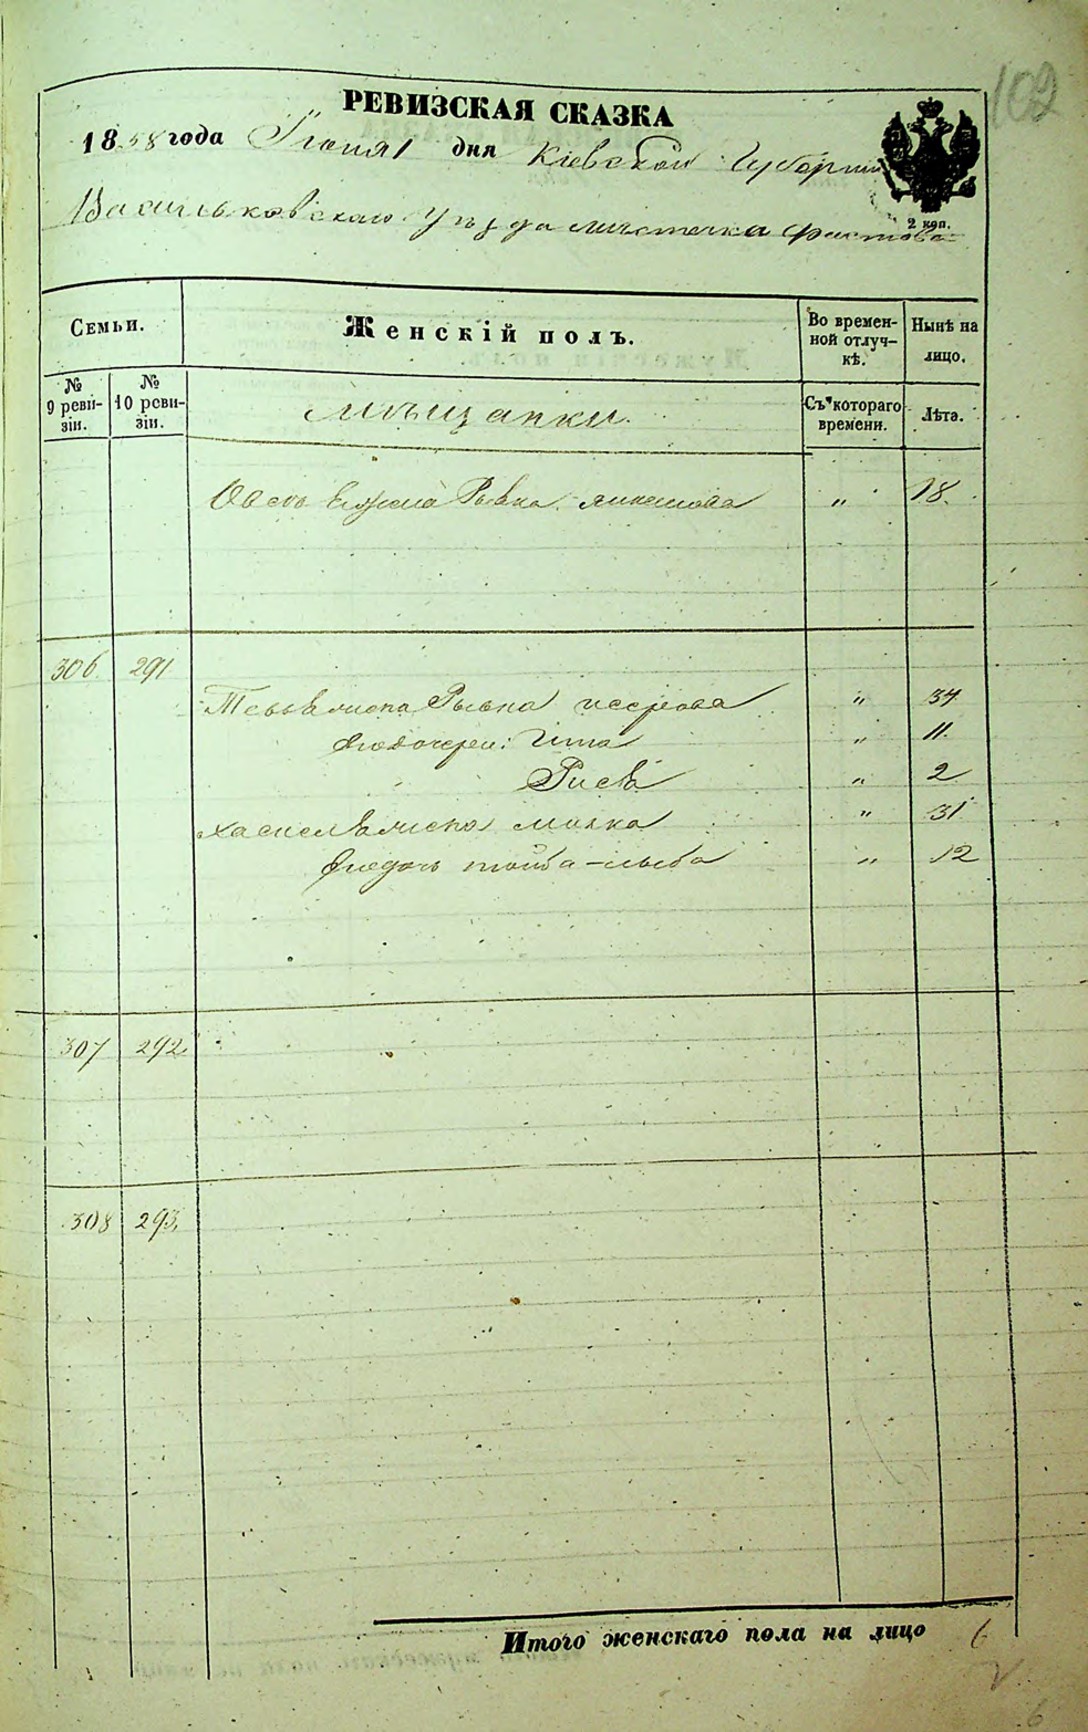 102
РЕВИЗСКАЯ СКАЗКА
1858 года Іюня 1 дня Кіевской Губерніи
Васильковскаго Уѣзда мѣстечка Фастова
2 коп.
Семьи.
Женскій полъ.
Во временной отлучкѣ.
Нынѣ на лицо.
№ 9 ревизіи.
№ 10 ревизіи.
мѣщанки.
Съ котораго времени.
Лѣта.
жена Рывка " 18.
306. 291
жена Рывка " 34
дочери: Гита " 11.
Рися " 2
жена Малка " 31
дочь " 12
307 292
308 293.
Итого женскаго пола на лицо 6
6